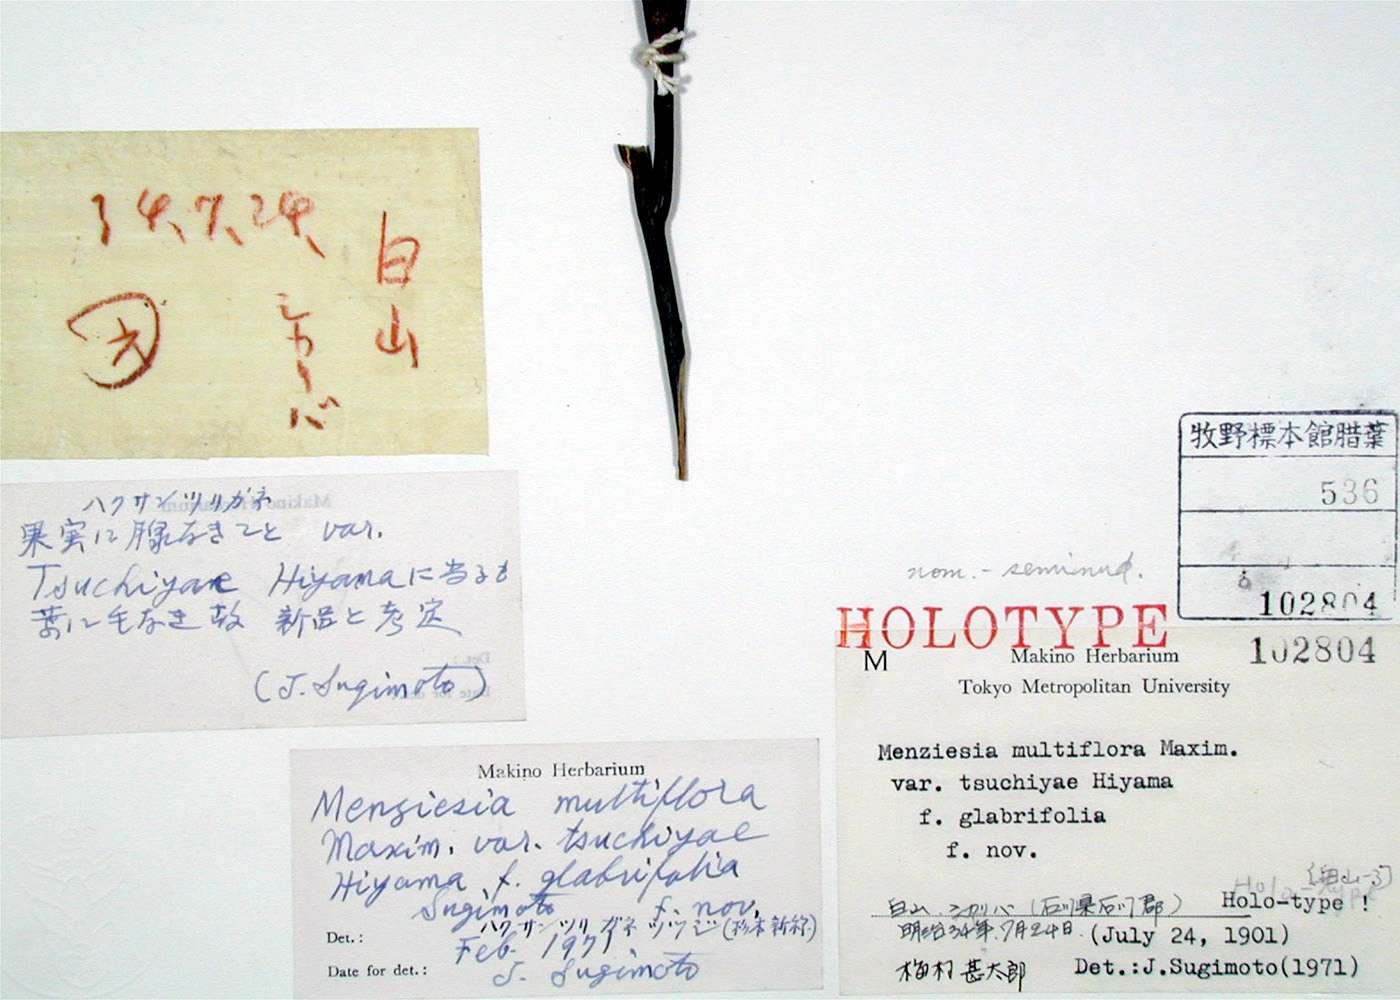 34.7.24.
白山
シカリバ
ハクサンツリガネ
果実に腺なきこと var.
Tsuchiyae Hiyamaに当るも
葉に毛なき故 新品と考定
(J. Sugimoto)
Makino Herbarium
Menziesia multiflora
Maxim. var. tsuchiyae
Hiyama f. glabrifolia
Sugimoto f. nov.
ハクサンツリガネツツジ(杉本新称)
Det.: Feb. 1971
Date for det.: J. Sugimoto
牧野標本館腊葉
536
102804
nom. - seminud.
HOLOTYPE
M
Makino Herbarium
102804
Tokyo Metropolitan University
Menziesia multiflora Maxim.
var. tsuchiyae Hiyama
f. glabrifolia
f. nov.
Holo-type !
白山 シカリバ (石川県石川郡)
明治34年7月24日 (July 24, 1901)
梅村甚太郎 Det.:J.Sugimoto(1971)